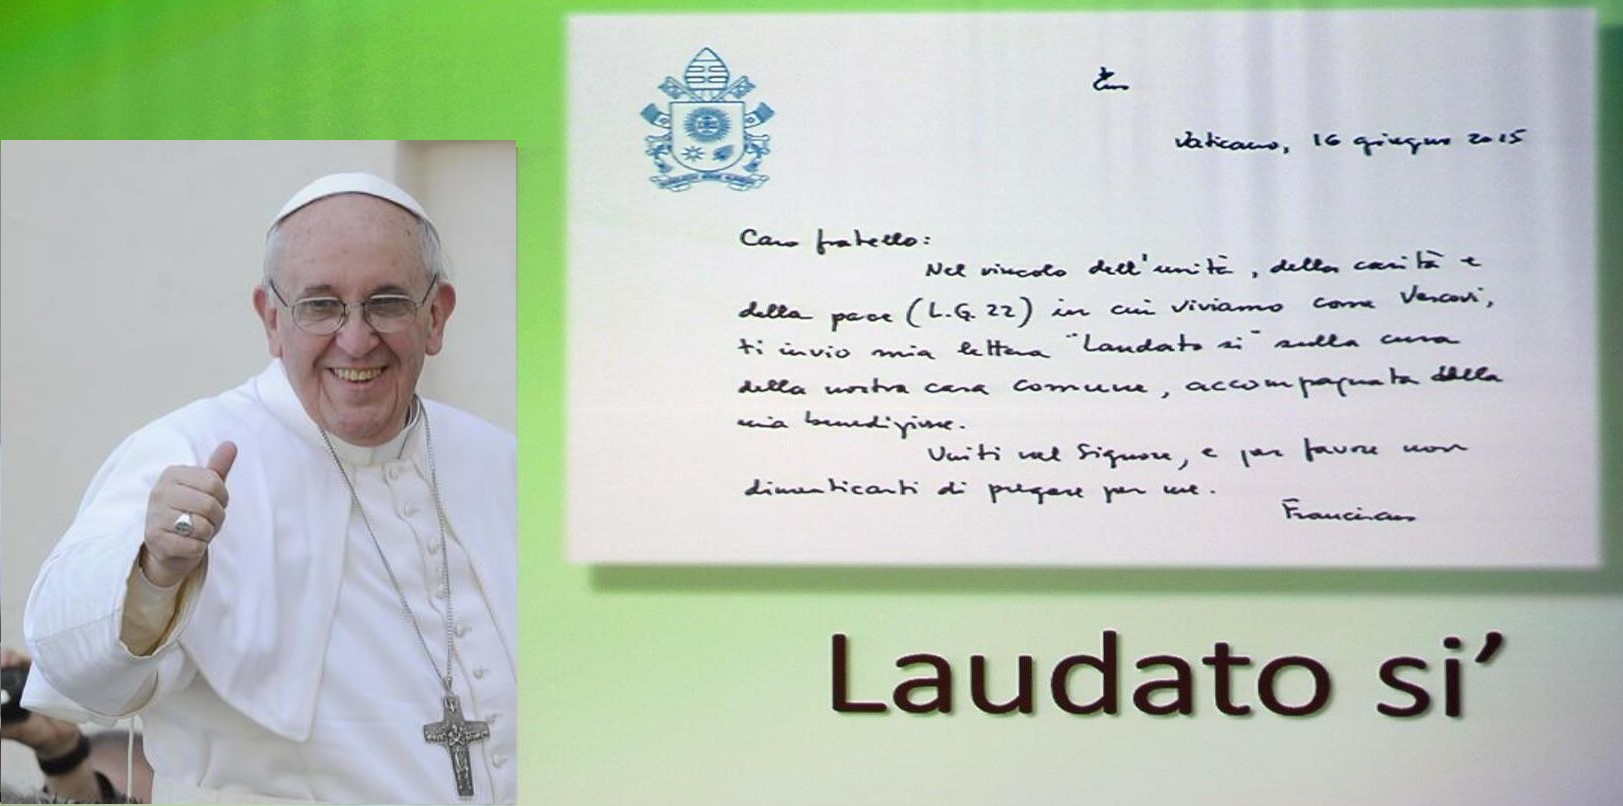 Vaticano, 16 giugno 2015
Caro fratello:
Nel vincolo dell'unità, della carità e
della pace (L.G. 22) in cui viviamo come Vescovi,
ti invio mia lettera "Laudato si" sulla cura
della nostra casa comune, accompagnata dalla
mia benedizione.
Uniti nel Signore, e per favore non
dimenticarti di pregare per me.
Franciscus
Laudato si’